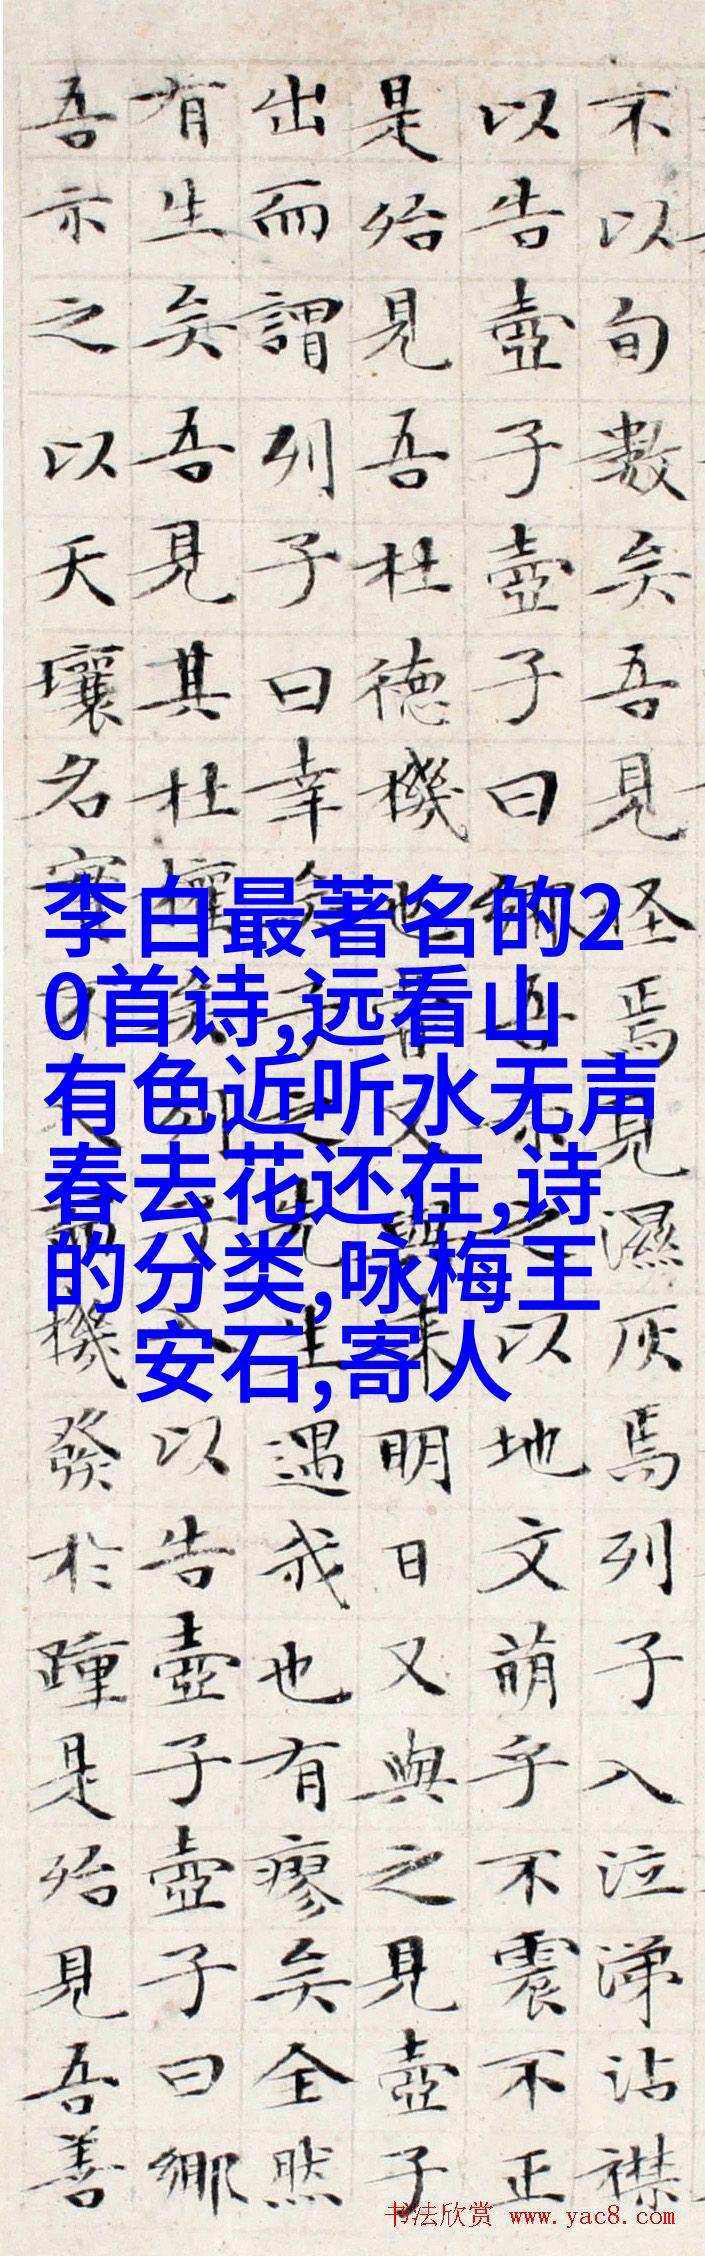 不以旬數矣吾見怪焉見濕灰焉列子入泣涕沾襟
以告壺子壺子曰鄉吾示之以地文萌乎不震不正
是殆見吾杜德機也嘗又與来明日又與之見壺子
出而謂列子曰幸矣子之先生遇我也有瘳矣全然
有生矣吾見其杜權矣列子入以告壺子壺子曰鄉
吾示之以天壤名實不入而機發於踵是殆見吾善
李白最著名的2
0首诗,远看山
有色近听水无声
春去花还在,诗
的分类,咏梅王
安石,寄人
书法欣赏 www.yac8.com